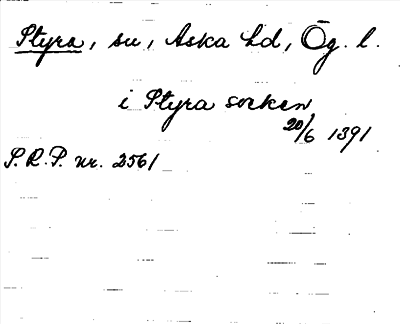 Styra, su, Aska hd, Ög. l.
i Styra socken
20/6 1391
S. R. P. nr. 2561